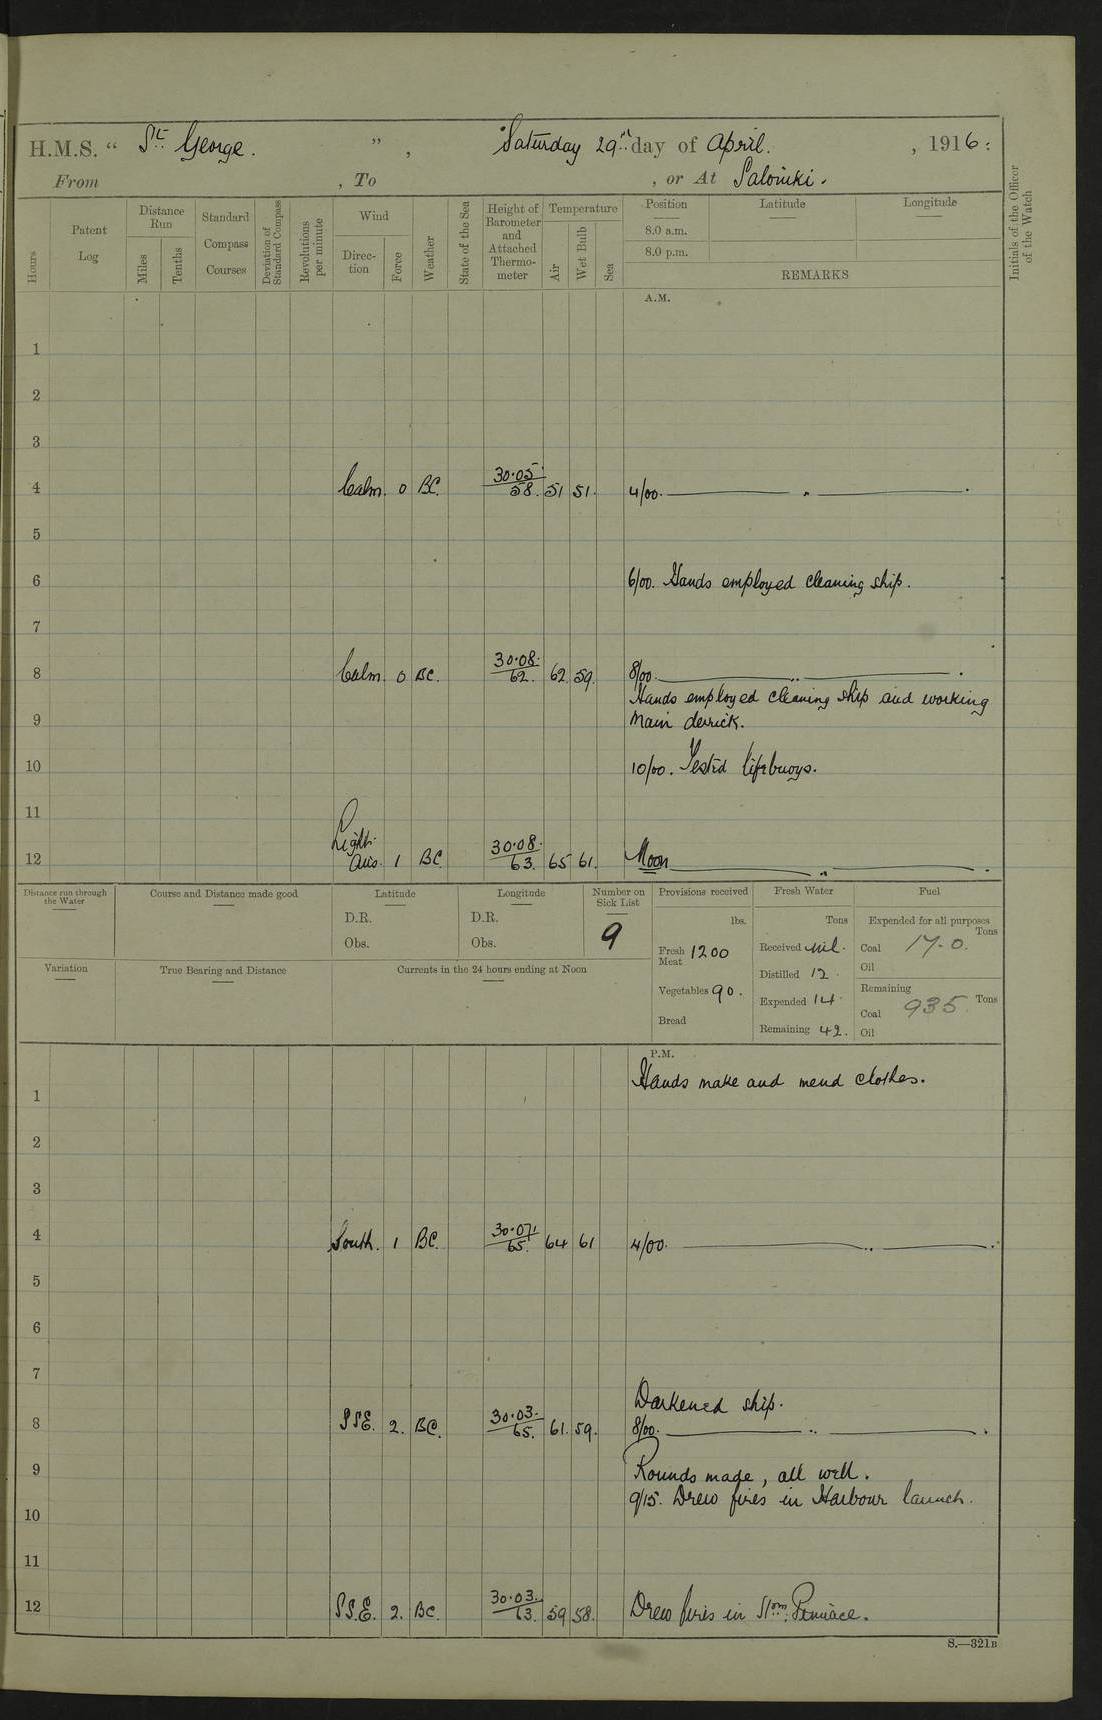 H.M.S. “ St. George. ” , Saturday 29th day of April. , 1916 :
From , To , or At Salonki.
Hours
Patent Log
Distance Run
Miles
Tenths
Standard Compass Courses
Deviation of Standard Compass
Revolutions per minute
Wind
Direc-tion
Force
Weather
State of the Sea
Height of Barometer and Attached Thermo-meter
Temperature
Air
Wet Bulb
Sea
Position Latitude Longitude
8.0 a.m.
8.0 p.m.
REMARKS
Initials of the Officer of the Watch
A.M.
1
2
3
4 Calm. 0 BC. 30.05 58. 51 51. 4/00. ——— „ ———.
5
6 6/00. Hands employed cleaning ship.
7
8 Calm. 0 BC. 30.08. 62. 62. 59. 8/00. ——— „ ———.
Hands employed cleaning ship and working
9 Main derrick.
10 10/00. Tested lifebuoys.
11
Light
12 Airs. 1 BC 30.08. 63. 65 61. Noon ——— „ ———.
Distance run through the Water
Course and Distance made good
Latitude
D.R.
Obs.
Longitude
D.R.
Obs.
Number on Sick List
9
Provisions received
lbs.
Fresh Meat 1200
Vegetables 90.
Bread
Fresh Water
Tons
Received nil.
Distilled 12.
Expended 14.
Remaining 42.
Fuel
Expended for all purposes
Tons
Coal 17.0.
Oil
Remaining
Coal 935. Tons
Oil
Variation
True Bearing and Distance
Currents in the 24 hours ending at Noon
P.M.
Hands make and mend clothes.
1
2
3
4 South. 1 BC. 30.07. 65. 64 61 4/00. ——— „ ———.
5
6
7
Darkened ship.
8 SSE. 2. BC. 30.03. 65. 61. 59. 8/00. ——— „ ———.
9 Rounds made, all well.
9/15. Drew fires in Harbour launch.
10
11
12 S.S.E. 2. BC. 30.03. 63. 59 58. Drew fires in Stm. Pinnace.
S.—321B